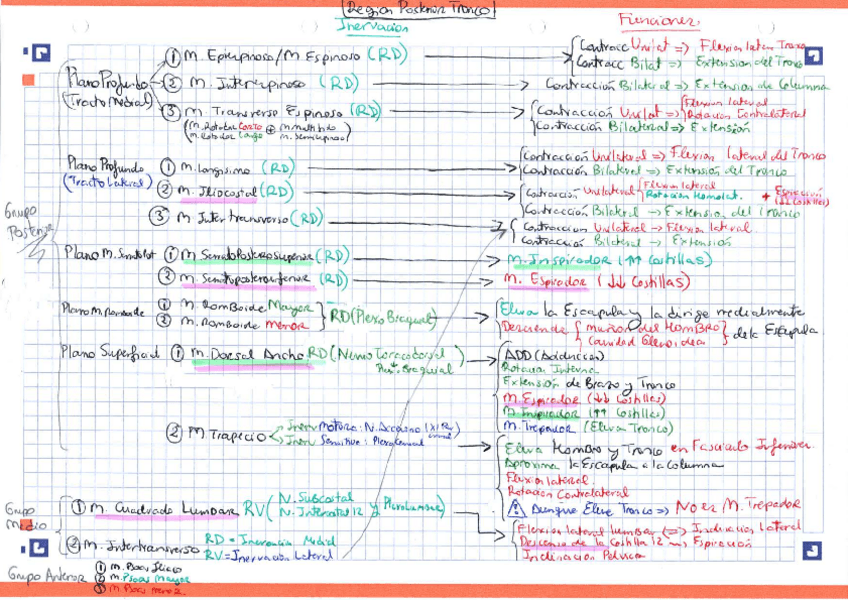 Region Posterior Tronco
Inervacion
Funciones:
Grupo Posterior
Plano Profundo (Tracto Medial)
① M. Epiespinoso/M Espinoso (RD)
Contracc Unilat => Flexion latera Tronco
Contracc Bilat => Extension del Tronco
② M. Interespinoso (RD)
Contracción Bilateral => Extension de Columna
③ M. Transverso Espinoso (RD)
(M. Rotador Corto M. Rotador Largo ⊕ M. multifido M. Semiespinoso)
Contracción Unilat => Flexion lateral Rotacion Contralateral
Contracción Bilateral => Extensión
Plano Profundo (Tracto Lateral)
① M. Longisimo (RD)
Contracción Unilateral => Flexion lateral del Tronco
Contracción Bilateral => Extensión del Tronco
② M. Iliocostal (RD)
Contracción Unilateral Flexion lateral Rotacion Homolat. + Espiración (↓↓ Costillas)
Contracción Bilateral → Extensión del Tronco
③ M Intertransverso (RD)
Contraccion Unilateral → Flexion lateral.
Contracción Bilateral → Extensión
Plano M. Serrato Post
① M Serrato Postero Superior (RD)
M. Inspirador (↑↑ Costillas)
② M. Serrato postero inferior (RD)
M. Espirador (↓↓ Costillas)
Plano M. Romboide
① M. Romboide Mayor
② M. Romboide menor
RD (Plexo Braquial)
Eleva la Escapula y la dirige medialmente
Desciende { Muñon del Hombro Cavidad Glenoidea } de la Escapula
Plano Superficial
① M. Dorsal Ancho RD (Nervio Toracodorsal Plex. Braquial)
ADD (Aduccion)
Rotacion Interna
Extensión de Brazo y Tronco
M. Espirador (↓↓ Costillas)
M. Inspirador (↑↑ Costillas)
M. Trepador (Eleva Tronco)
② M Trapecio
Inerv Motora: N. Accesorio (XI P. craneal)
Inerv Sensitiva: Plexo Cervical
Eleva Hombro y Tronco en Fasciculo Inferior
Aproxima la Escapula a la Columna
Flexion lateral
Rotacion Contralateral
⚠ Aunque Eleve Tronco => No es M. Trepador
Grupo Medio
① M. Cuadrado Lumbar RV (N. Subcostal N. Intercostal 12 y Plexo Lumbar)
Flexion lateral lumbar (=>) Inclinacion Lateral
Descenso de la Costilla 12 → Espiración
Inclinacion Pelvica
② M. Intertransverso
RD = Inervacion Medial
RV = Inervación Lateral
Grupo Anterior
① M. Psoas Iliaco
② M. Psoas Mayor
③ M. Psoas menor